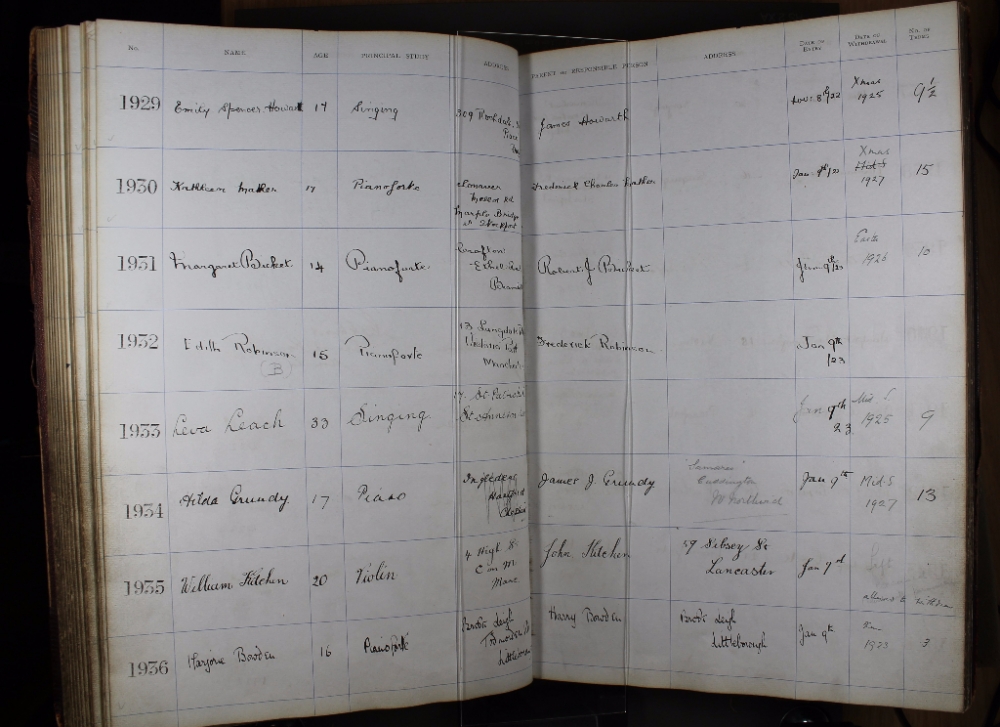 No. NAME AGE PRINCIPAL STUDY ADDRESS PARENT OR RESPONSIBLE PERSON ADDRESS DATE OF ENTRY DATE OF WITHDRAWAL NO. OF TERMS
1929 Emily Spencer Howarth 17 Singing 309 James Howarth Nov. 8th/22 Xmas 1925 9½
1930 Kathleen Mather 17 Pianoforte Marple Bridge nr Stockport Frederick Charles Mather Jan 9th/23 Xmas 1927 15
1931 Margaret Bicket 14 Pianoforte Ethel Robert J Bicket Jan 9th/23 Easter 1926 10
1932 Edith Robinson (B) 15 Pianoforte 13 Frederick Robinson Jan 9th /23
1933 Leva Leach 33 Singing 17 Jan 9th 23 Mid S 1925 9
1934 Hilda Grundy 17 Piano James J Grundy Cuddington Nr Northwich Jan 9th Mid. S 1927 13
1935 William Kitchen 20 Violin 4 High St C on M Manc John Kitchen 59 Sibsey St Lancaster Jan 9th allowed to withdraw
1936 Marjorie Bowden 16 Pianoforte Leigh Todmorden Harry Bowden Leigh Littleborough Jan 9th 1923 3